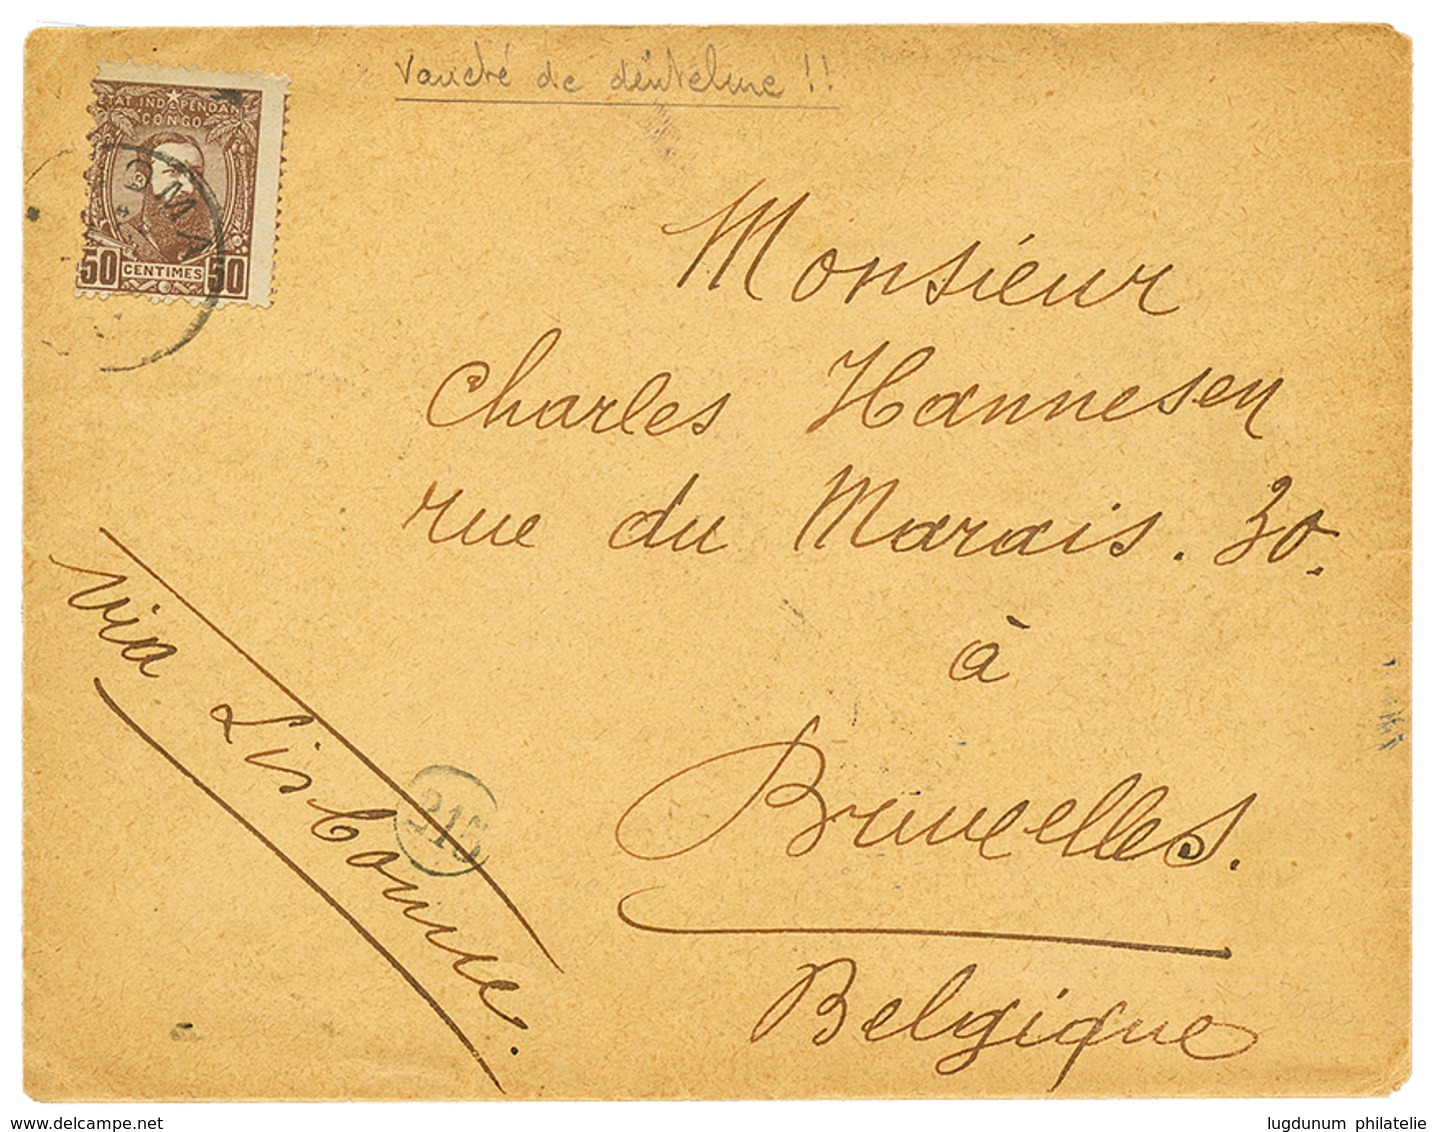 Variété de dentelure !!
ETAT INDÉPENDANT
CONGO
50 CENTIMES 50
OMA
Monsieur
Charles Hannesen
rue du Marais. 30.
à
Bruxelles.
Belgique
via Lisbonne.
215
www.delcampe.net
lugdunum philatelie